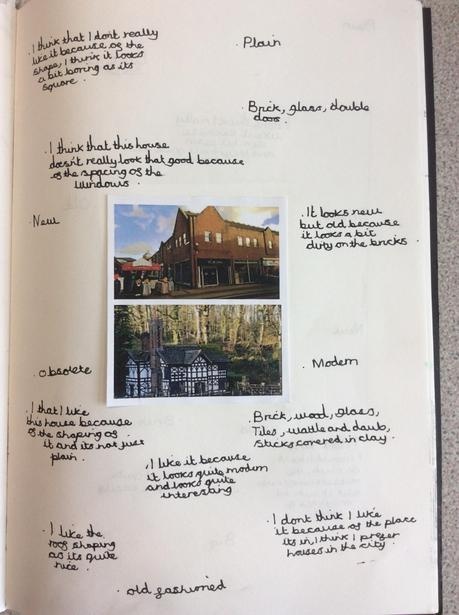 . I think that I don't really
like it because of the
shape, I think it looks
a bit boring as its
square .
. Plain
. Brick, glass, double
door .
. I think that this house
doesn't really look that good because
of the spacing of the
windows .
. New
. It looks new
but old because
it looks a bit
dirty on the bricks .
. obsolete
. Modern
. I that I like
this house because
of the shaping of
it and its not just
plain .
Brick, wood, glass,
Tiles, wattle and daub,
sticks covered in clay .
. I like it because
it looks quite modern
and looks quite
interesting
. I dont think I like
it because of the place
its in, I think I prefer
houses in the city .
. I like the
roof shaping
as its quite
nice .
. old fashioned